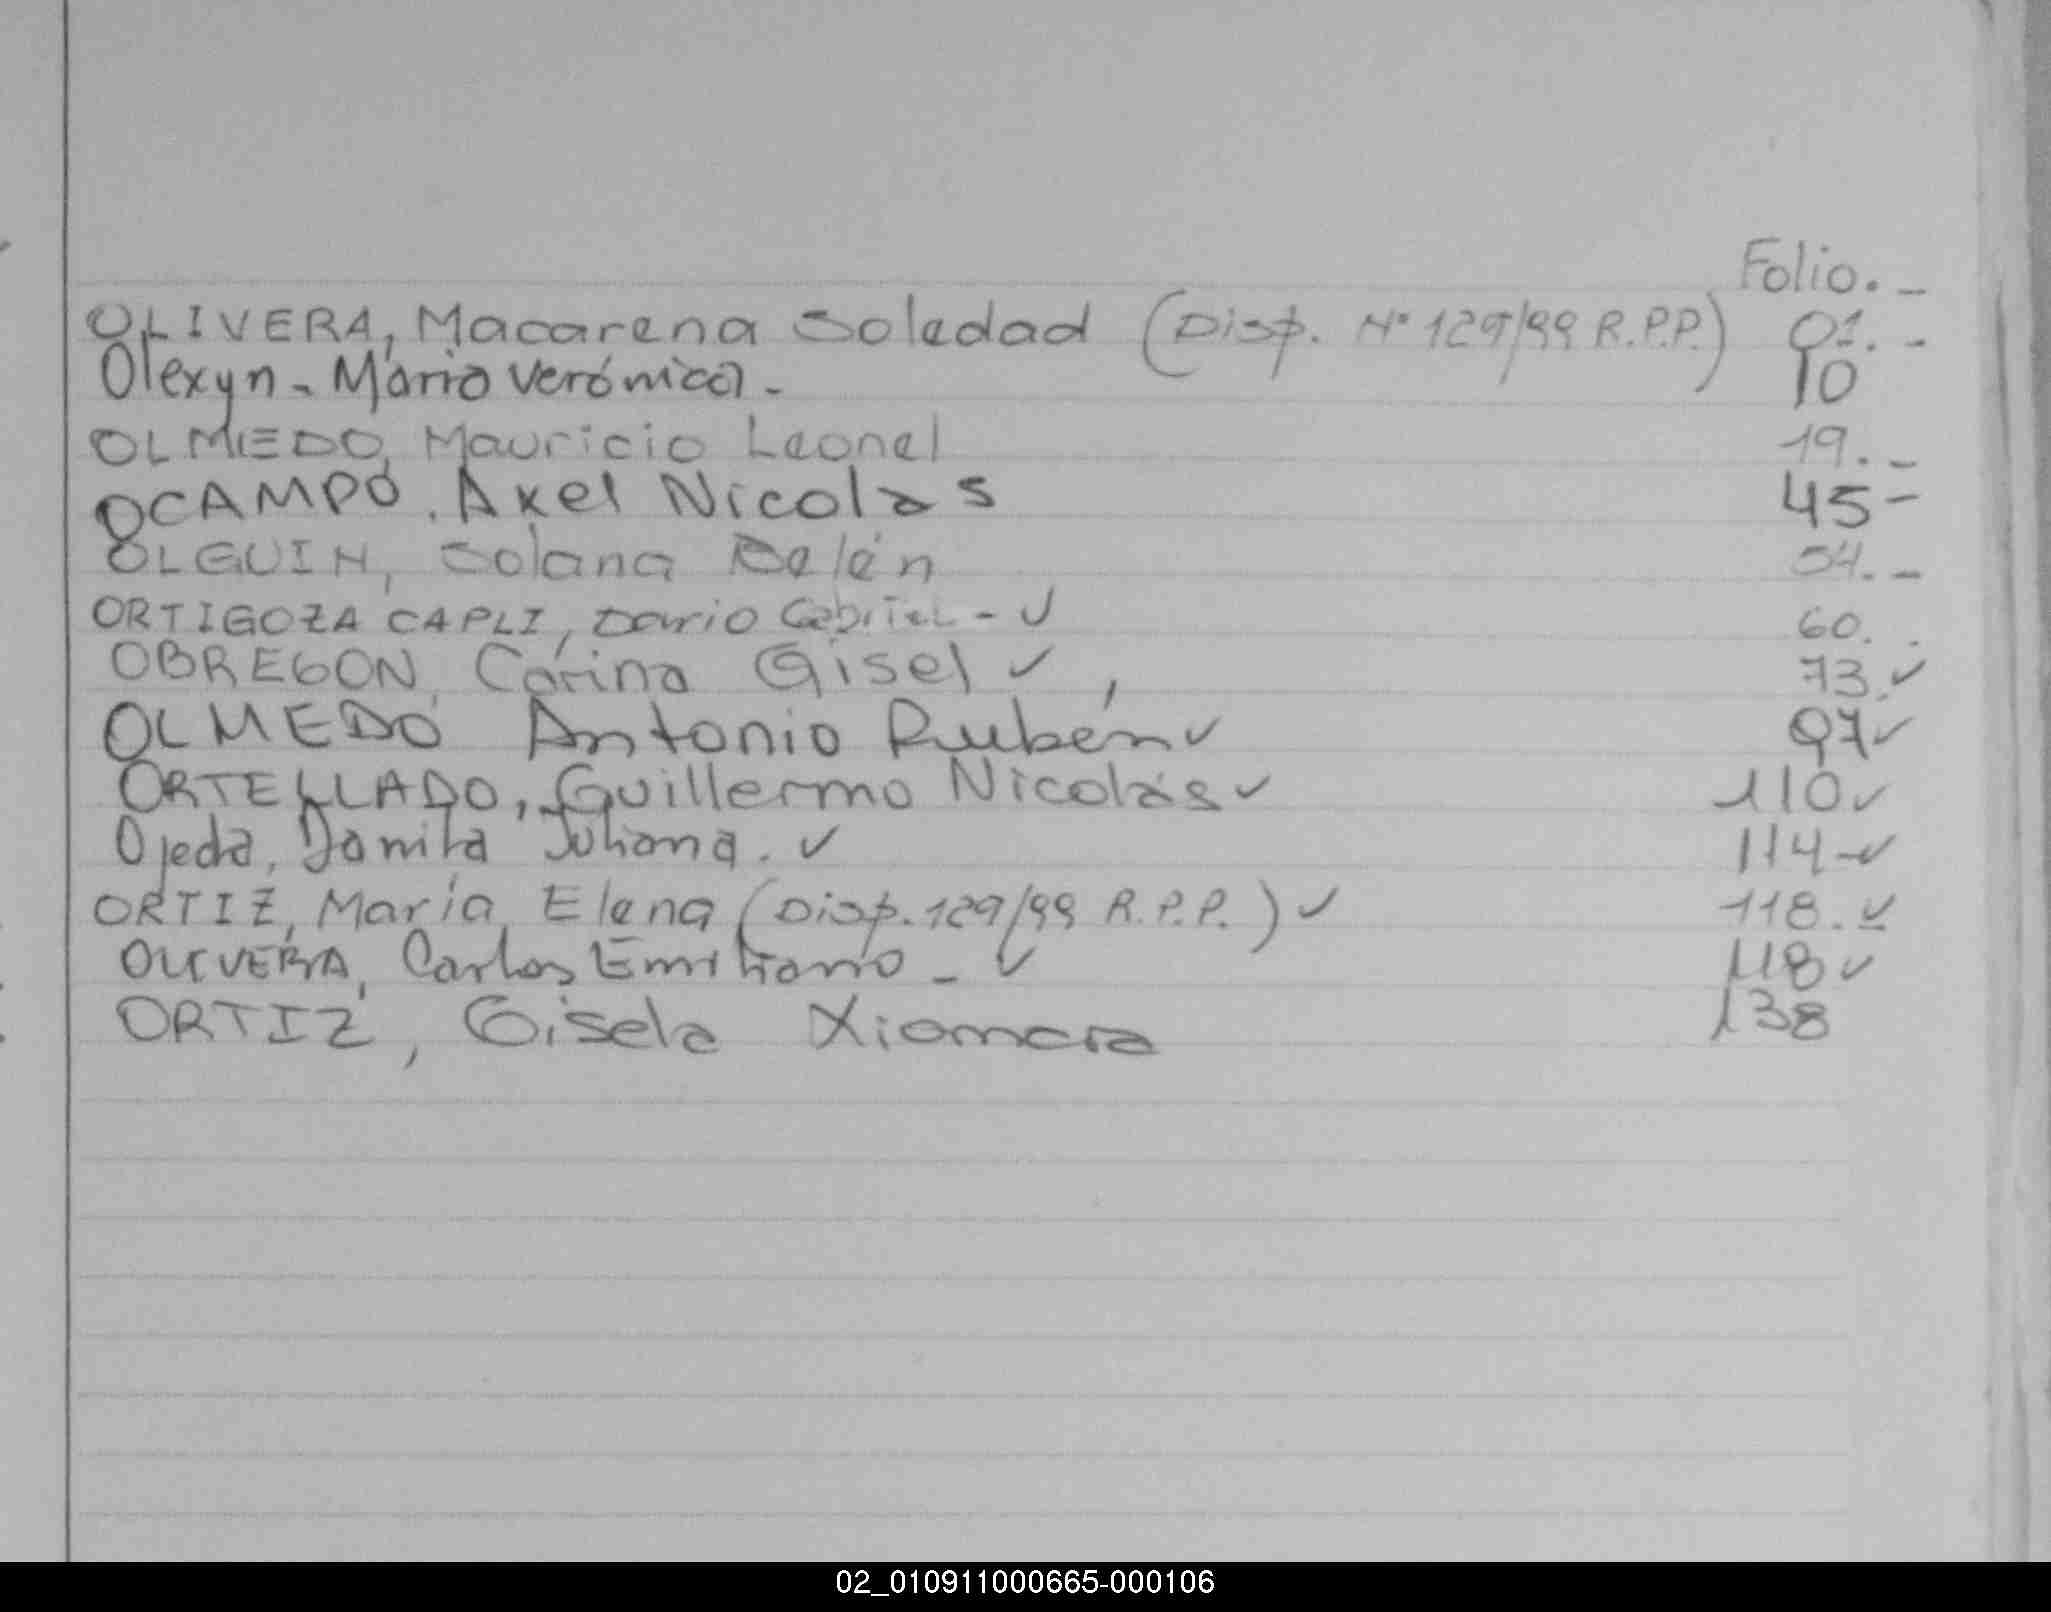 Folio._
OLIVERA, Macarena Soledad (Disp. N° 129/99 R.P.P.) 01.-
Olexyn - María Verónica - 10
OLMEDO, Mauricio Leonel 19._
OCAMPO, Axel Nicolas 45-
OLGUIN, Solana Belén 54._
ORTIGOZA CAPLI, Dario Gabriel - ✓ 60.
OBREGON, Carina Gisel ✓ 73.✓
OLMEDO Antonio Rubén ✓ 97✓
ORTELLADO, Guillermo Nicolás ✓ 110✓
Ojeda, Juliana. ✓ 114-✓
ORTIZ, María Elena (Disp. 129/99 R.P.P.) ✓ 118.✓
OLIVERA, Carlos Emiliano - ✓ 118✓
ORTIZ, Gisela Xiomara 138
02_010911000665-000106